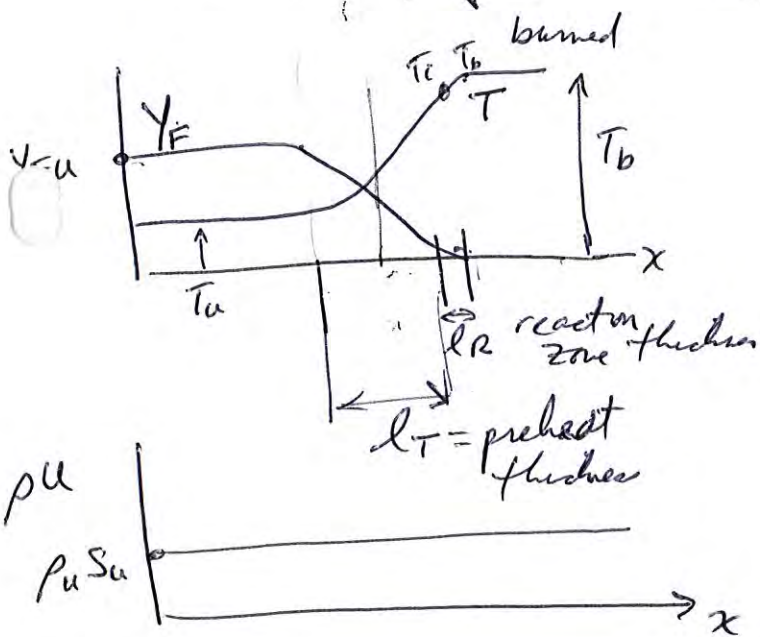 burned
Ti Tb
Y_F
T
Tb
x
Tu
l_R reaction
zone thickness
l_T = preheat
thickness
ρu
ρu Su
x